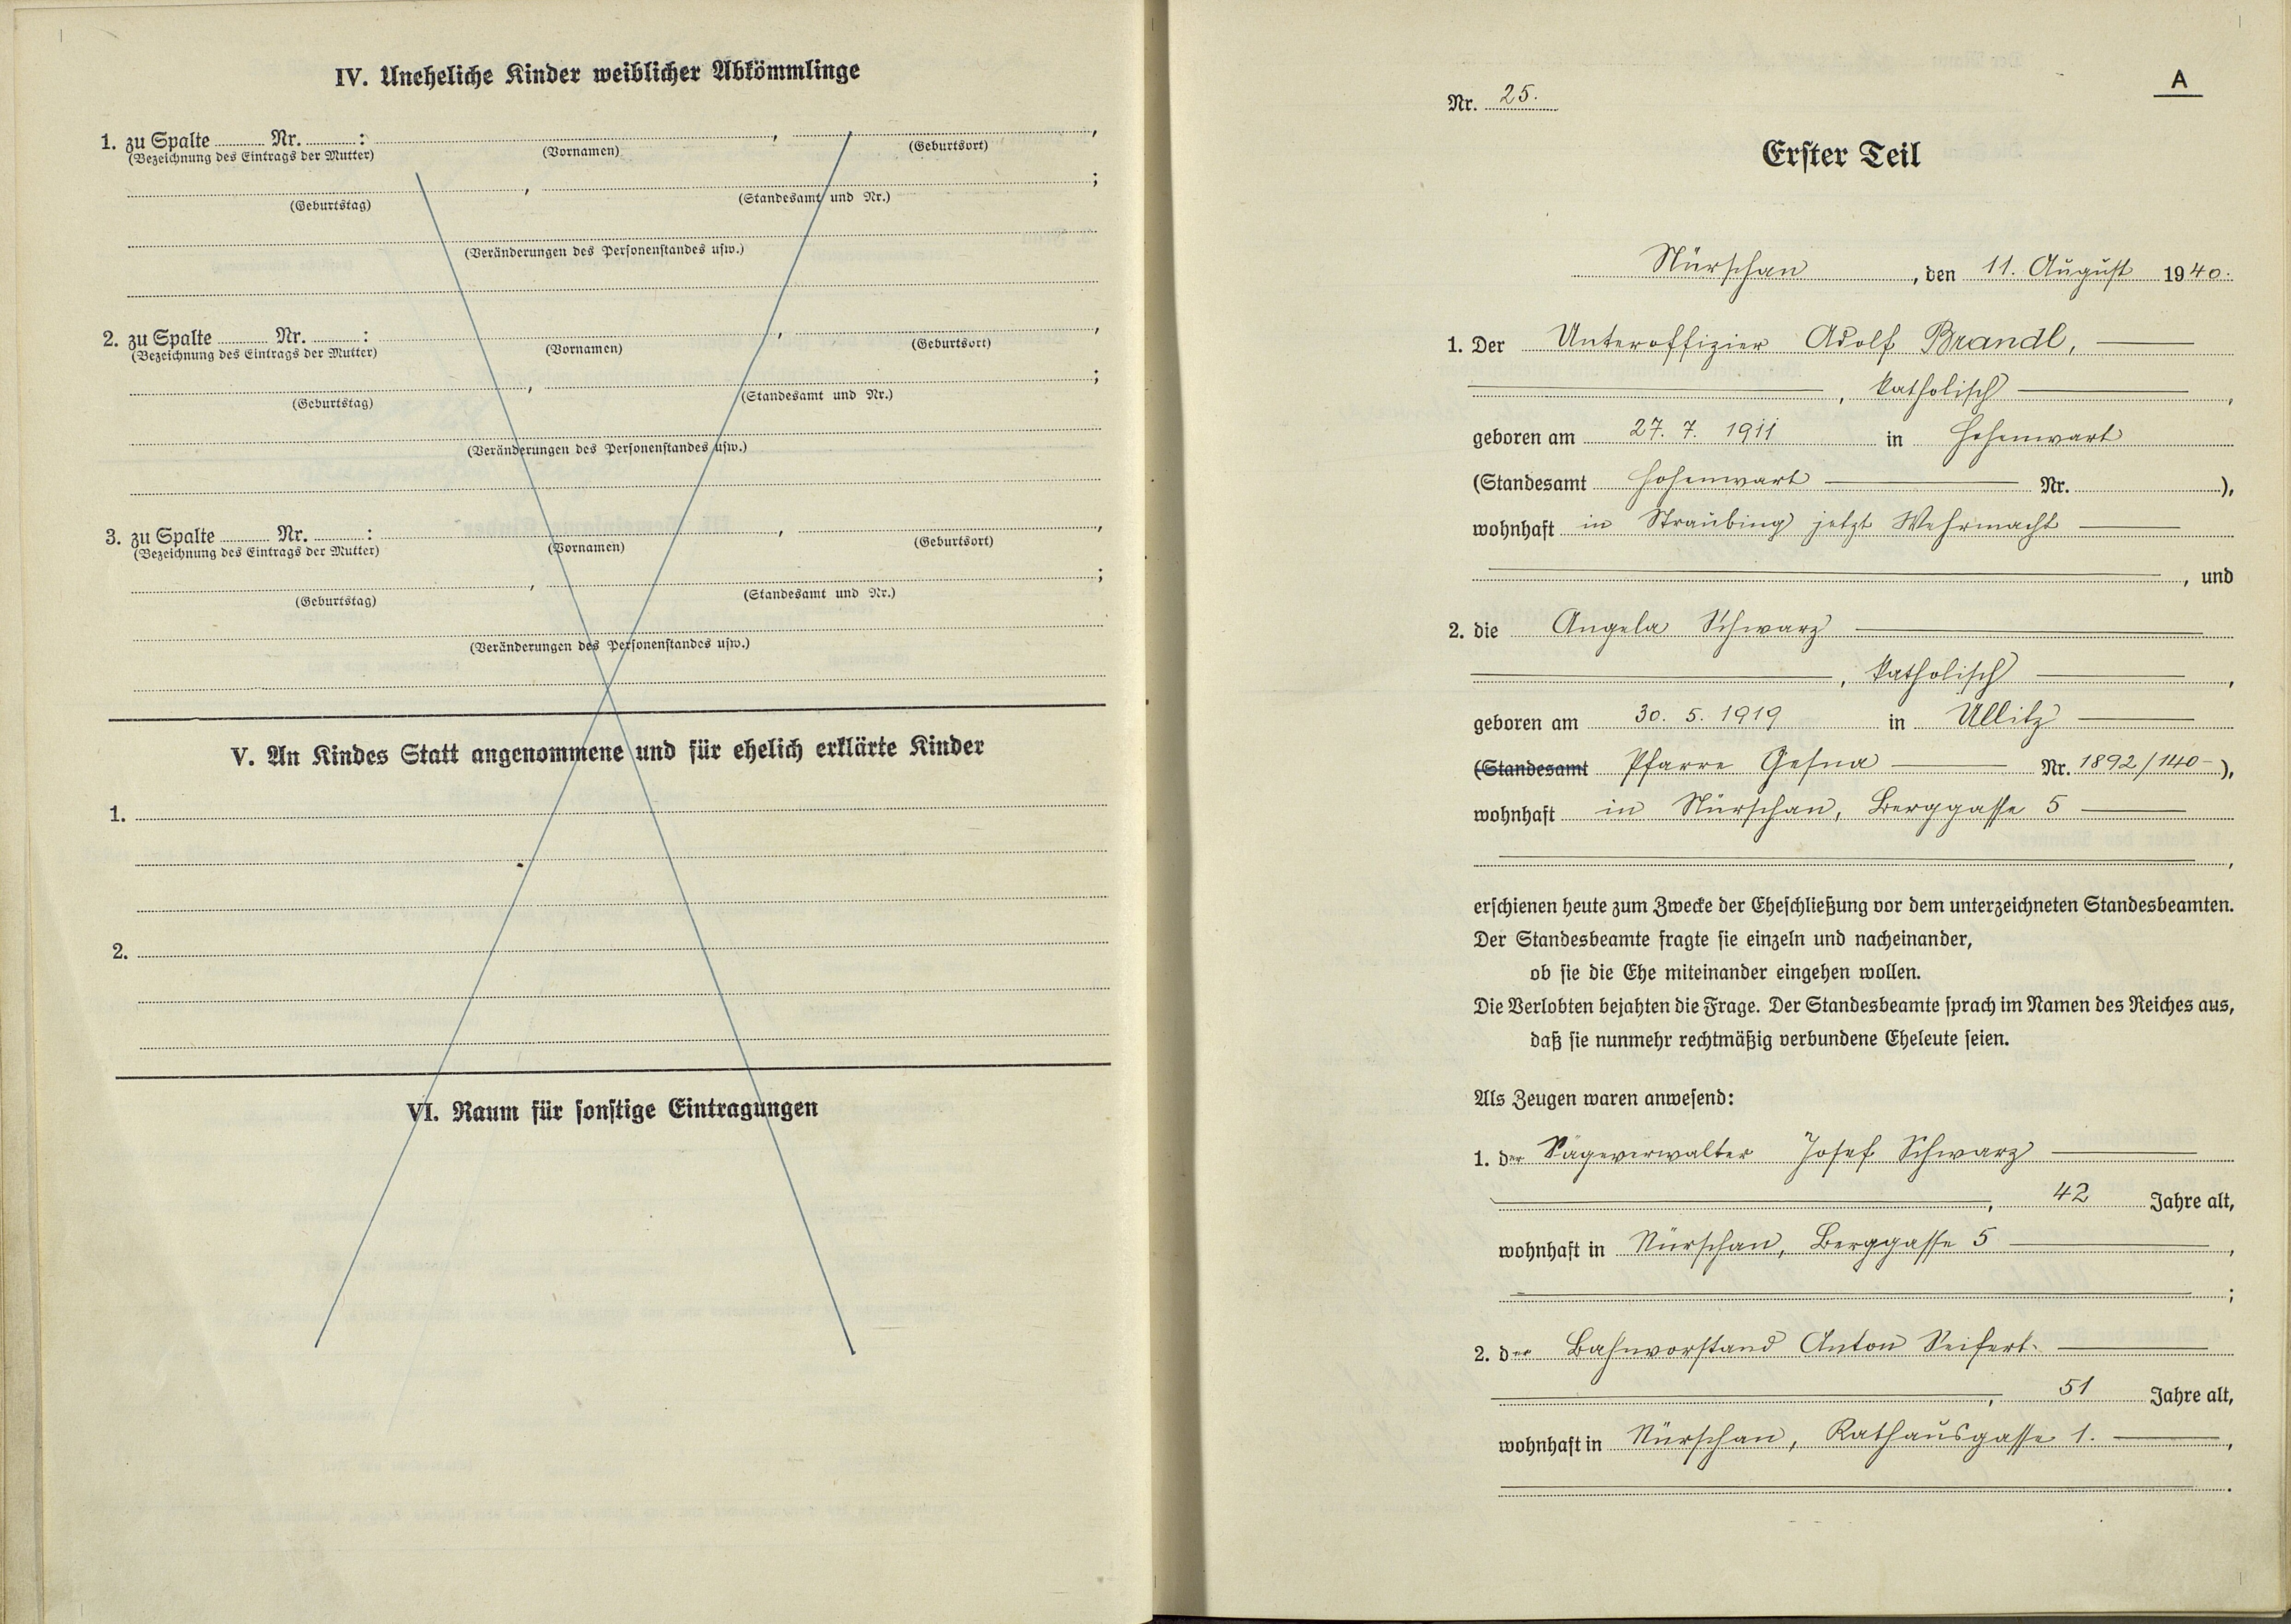 IV. Uneheliche Kinder weiblicher Abkömmlinge
1. zu Spalte Nr. : , ,
(Bezeichnung des Eintrags der Mutter) (Vornamen) (Geburtsort)
, ;
(Geburtstag) (Standesamt und Nr.)
(Veränderungen des Personenstandes usw.)
2. zu Spalte Nr. : , ,
(Bezeichnung des Eintrags der Mutter) (Vornamen) (Geburtsort)
, ;
(Geburtstag) (Standesamt und Nr.)
(Veränderungen des Personenstandes usw.)
3. zu Spalte Nr. : , ,
(Bezeichnung des Eintrags der Mutter) (Vornamen) (Geburtsort)
, ;
(Geburtstag) (Standesamt und Nr.)
(Veränderungen des Personenstandes usw.)
V. An Kindes Statt angenommene und für ehelich erklärte Kinder
1.
2.
VI. Raum für sonstige Eintragungen
A
Nr. 25.
Erster Teil
Nürschan, den 11. August 1940.
1. Der Unteroffizier Adolf Brandl,
, katholisch ,
geboren am 27. 7. 1911 in Hohenwart
(Standesamt Hohenwart Nr. ),
wohnhaft in Straubing jetzt Wehrmacht
, und
2. die Angela Schwarz
, katholisch ,
geboren am 30. 5. 1919 in Ullitz
(Standesamt Pfarre Gesna Nr. 1892/140 ),
wohnhaft in Nürschan, Berggasse 5
,
erschienen heute zum Zwecke der Eheschließung vor dem unterzeichneten Standesbeamten.
Der Standesbeamte fragte sie einzeln und nacheinander,
ob sie die Ehe miteinander eingehen wollen.
Die Verlobten bejahten die Frage. Der Standesbeamte sprach im Namen des Reiches aus,
daß sie nunmehr rechtmäßig verbundene Eheleute seien.
Als Zeugen waren anwesend:
1. der Sägeverwalter Josef Schwarz
, 42 Jahre alt,
wohnhaft in Nürschan, Berggasse 5 ,
;
2. der Bahnvorstand Anton Seifert.
, 51 Jahre alt,
wohnhaft in Nürschan, Rathausgasse 1. ,
.